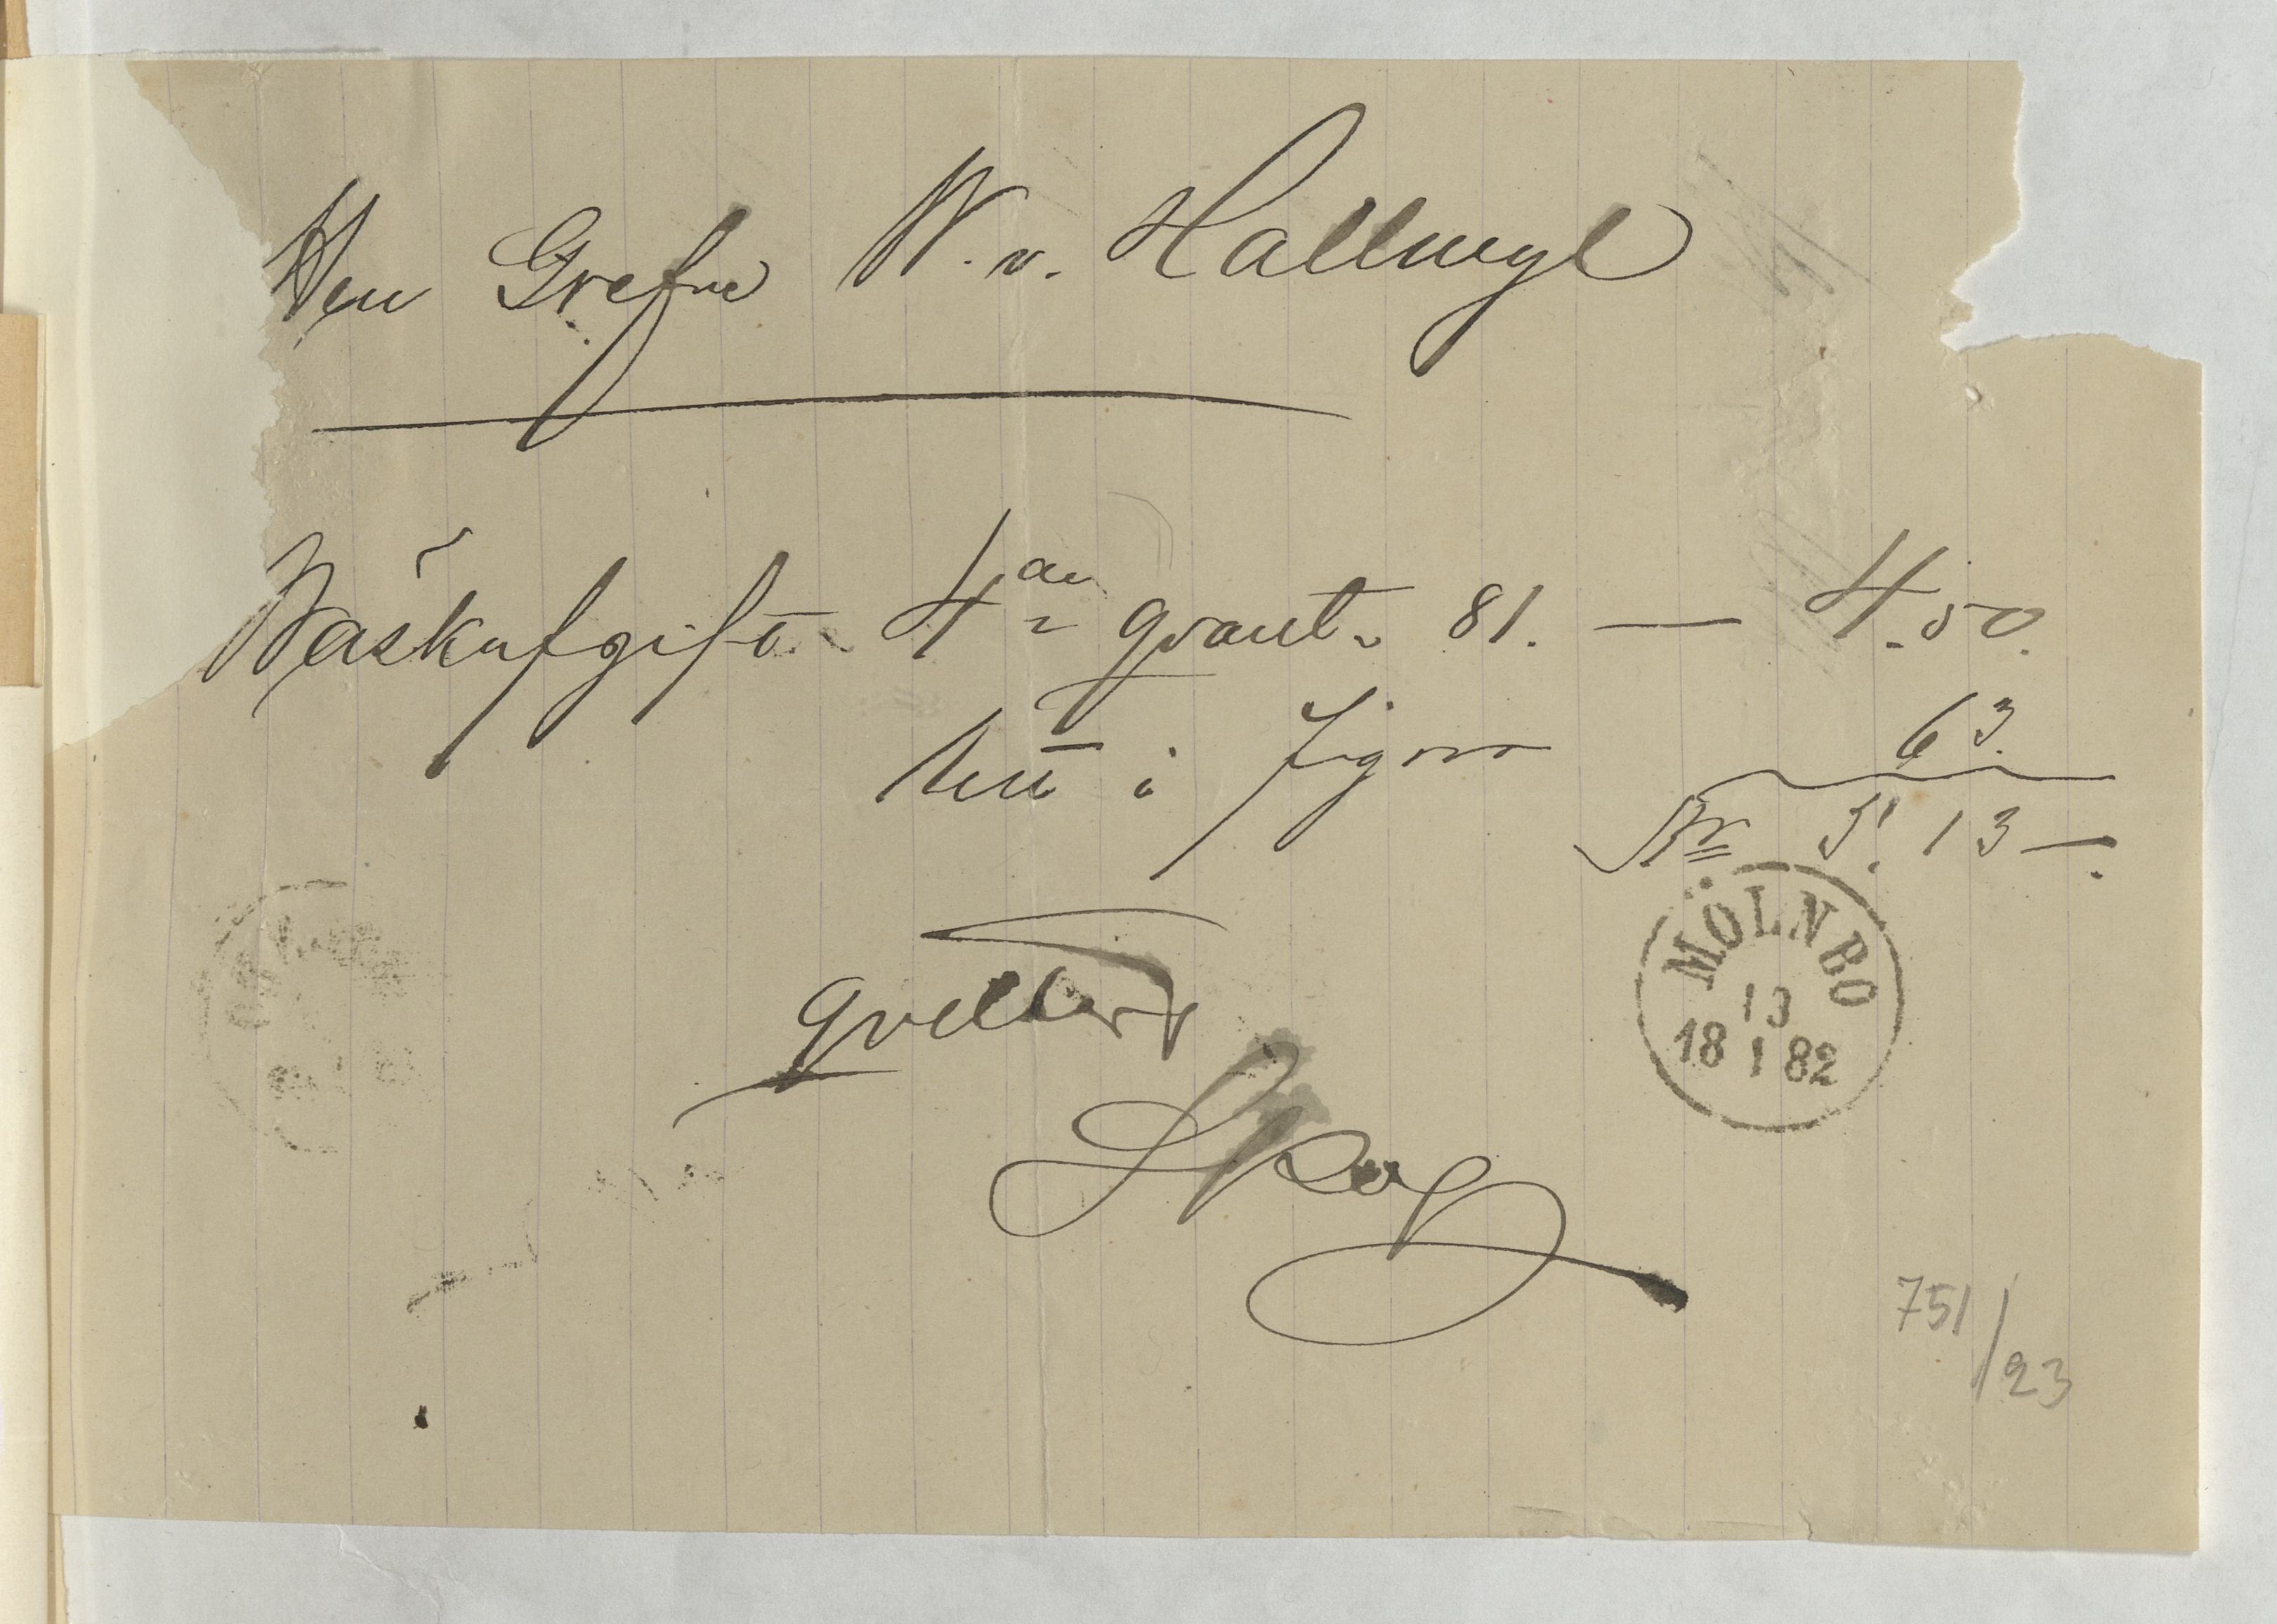 Herr Grefve W. v. Hallwyl
Väskafgift 4de qvart. 81. — 4.50.
63.
Kr 5. 13 —.
qvitteras
MÖLNBO
13
18 1 82
751/23